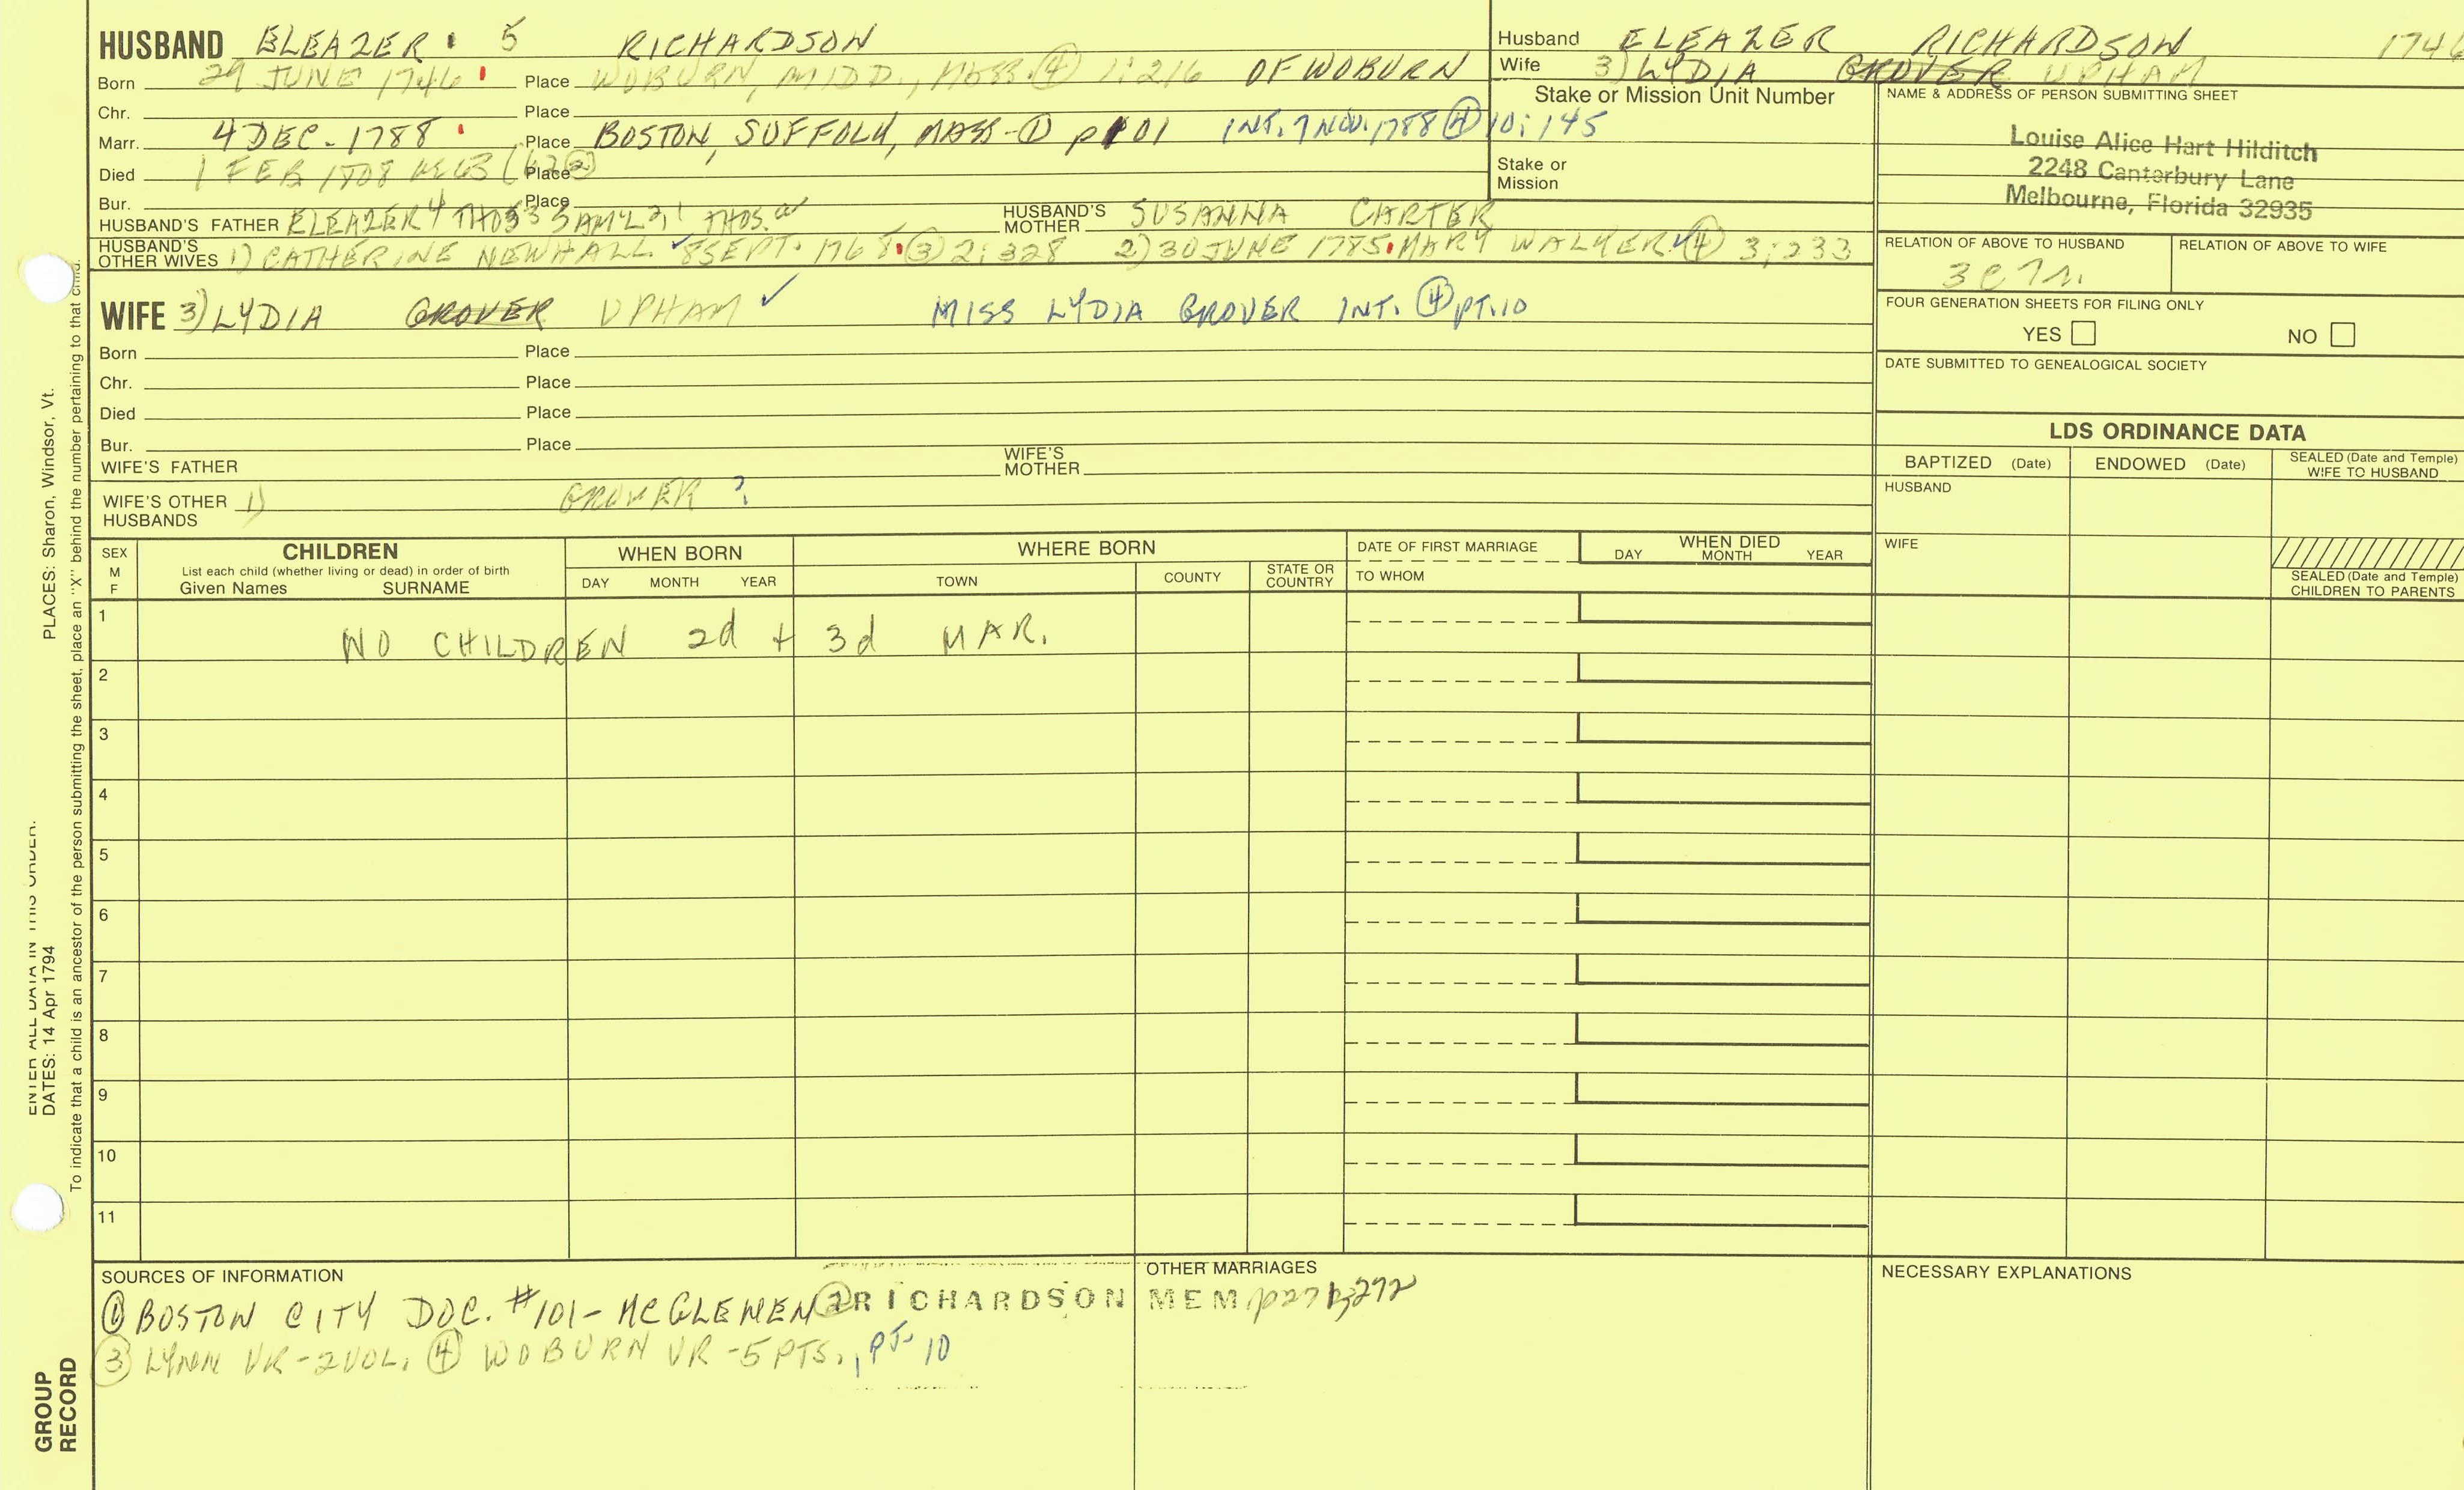 HUSBAND ELEAZER 5 RICHARDSON
Born 29 JUNE 1746 Place WOBURN, MIDD., MASS. ④ 1:216 OF WOBURN
Chr. Place
Marr. 4 DEC. 1788 Place BOSTON, SUFFOLK, MASS-① p101 INT. 7 NOV. 1788 ④ 10:145
Died 1 FEB 1808 Place
Bur. Place
HUSBAND'S FATHER ELEAZER 4 THOS 3 SAML 2, 1 THOS. HUSBAND'S MOTHER SUSANNA CARTER
HUSBAND'S OTHER WIVES 1) CATHERINE NEWHALL ✓ 8 SEPT. 1768 ③ 2:328 2) 30 JUNE 1785 MARY WALKER ④ 3:233
WIFE 3) LYDIA GROVER UPHAM ✓ MISS LYDIA GROVER INT. ④ PT.10
Born Place
Chr. Place
Died Place
Bur. Place
WIFE'S FATHER WIFE'S MOTHER
WIFE'S OTHER HUSBANDS 1) GROVER ?
Husband ELEAZER RICHARDSON 1746
Wife 3) LYDIA GROVER UPHAM
Stake or Mission Unit Number
Stake or
Mission
NAME & ADDRESS OF PERSON SUBMITTING SHEET
Louise Alice Hart Hilditch
2248 Canterbury Lane
Melbourne, Florida 32935
RELATION OF ABOVE TO HUSBAND RELATION OF ABOVE TO WIFE
3C7R.
FOUR GENERATION SHEETS FOR FILING ONLY
YES NO
DATE SUBMITTED TO GENEALOGICAL SOCIETY
LDS ORDINANCE DATA
BAPTIZED (Date) ENDOWED (Date) SEALED (Date and Temple) WIFE TO HUSBAND
HUSBAND
WIFE
SEALED (Date and Temple) CHILDREN TO PARENTS
SEX M F CHILDREN WHEN BORN WHERE BORN DATE OF FIRST MARRIAGE WHEN DIED
List each child (whether living or dead) in order of birth
Given Names SURNAME DAY MONTH YEAR TOWN COUNTY STATE OR COUNTRY TO WHOM DAY MONTH YEAR
1 NO CHILDREN 2d + 3d MAR.
2
3
4
5
6
7
8
9
10
11
SOURCES OF INFORMATION OTHER MARRIAGES NECESSARY EXPLANATIONS
① BOSTON CITY DOC. #101- MCGLENEN ② RICHARDSON MEM p271,272
③ LYNN VR-2VOL. ④ WOBURN VR-5PTS., PT. 10
PLACES: Sharon, Windsor, Vt.
ENTER ALL DATA IN THIS ORDER.
DATES: 14 Apr 1794
To indicate that a child is an ancestor of the person submitting the sheet, place an "X" behind the number pertaining to that child.
GROUP
RECORD